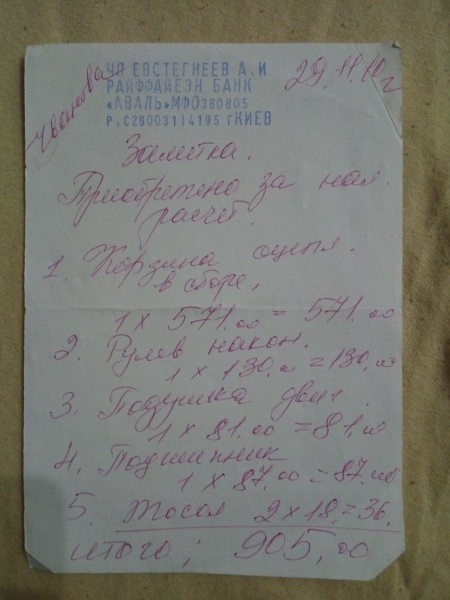 ЧП ЕВСТЕГНЕЕВ А.И
РАЙФФАЙЕЗН БАНК
«АВАЛЬ»МФО380805
Р.С26003114195 гКИЕВ
29.11.10г
Замитка.
Приобретено за нал.
расчет.
1. Корзина сцепл.
в сборе,
1 х 571,00 = 571,00
2. Рулев након.
1 х 130,00 = 130,00
3. Подушка двиг.
1 х 81,00 = 81,00
4. Подшипник
1 х 87,00 = 87,00
5. Тосол 2 х 18, = 36,
итого; 905,00